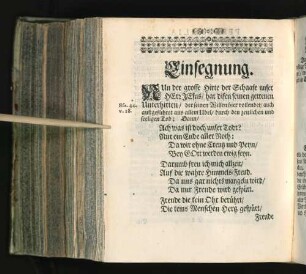 Einsegnung.
NUn der grosse Hirte der Schaafe unser
HErr JEsus/ hat disen seinen getreuen
Unterhirten/ der seinen Willen hier vollendet/ auch
außgeführet aus allem Übel/ durch den zeitlichen und
seeligen Tod; Dann/
Ach was ist doch unser Todt?
Nur ein Ende aller Noth:
Da wir ohne Creutz und Peyn/
Bey GOtt werden ewig seyn.
Darumb freu ich mich allzeit/
Auf die wahre Himmels Freud.
Da uns gar nichts mangeln wird/
Da nur Freude wird gespürt.
Freude die kein Ohr berührt/
Die keins Menschen Hertz gespürt/
Freude